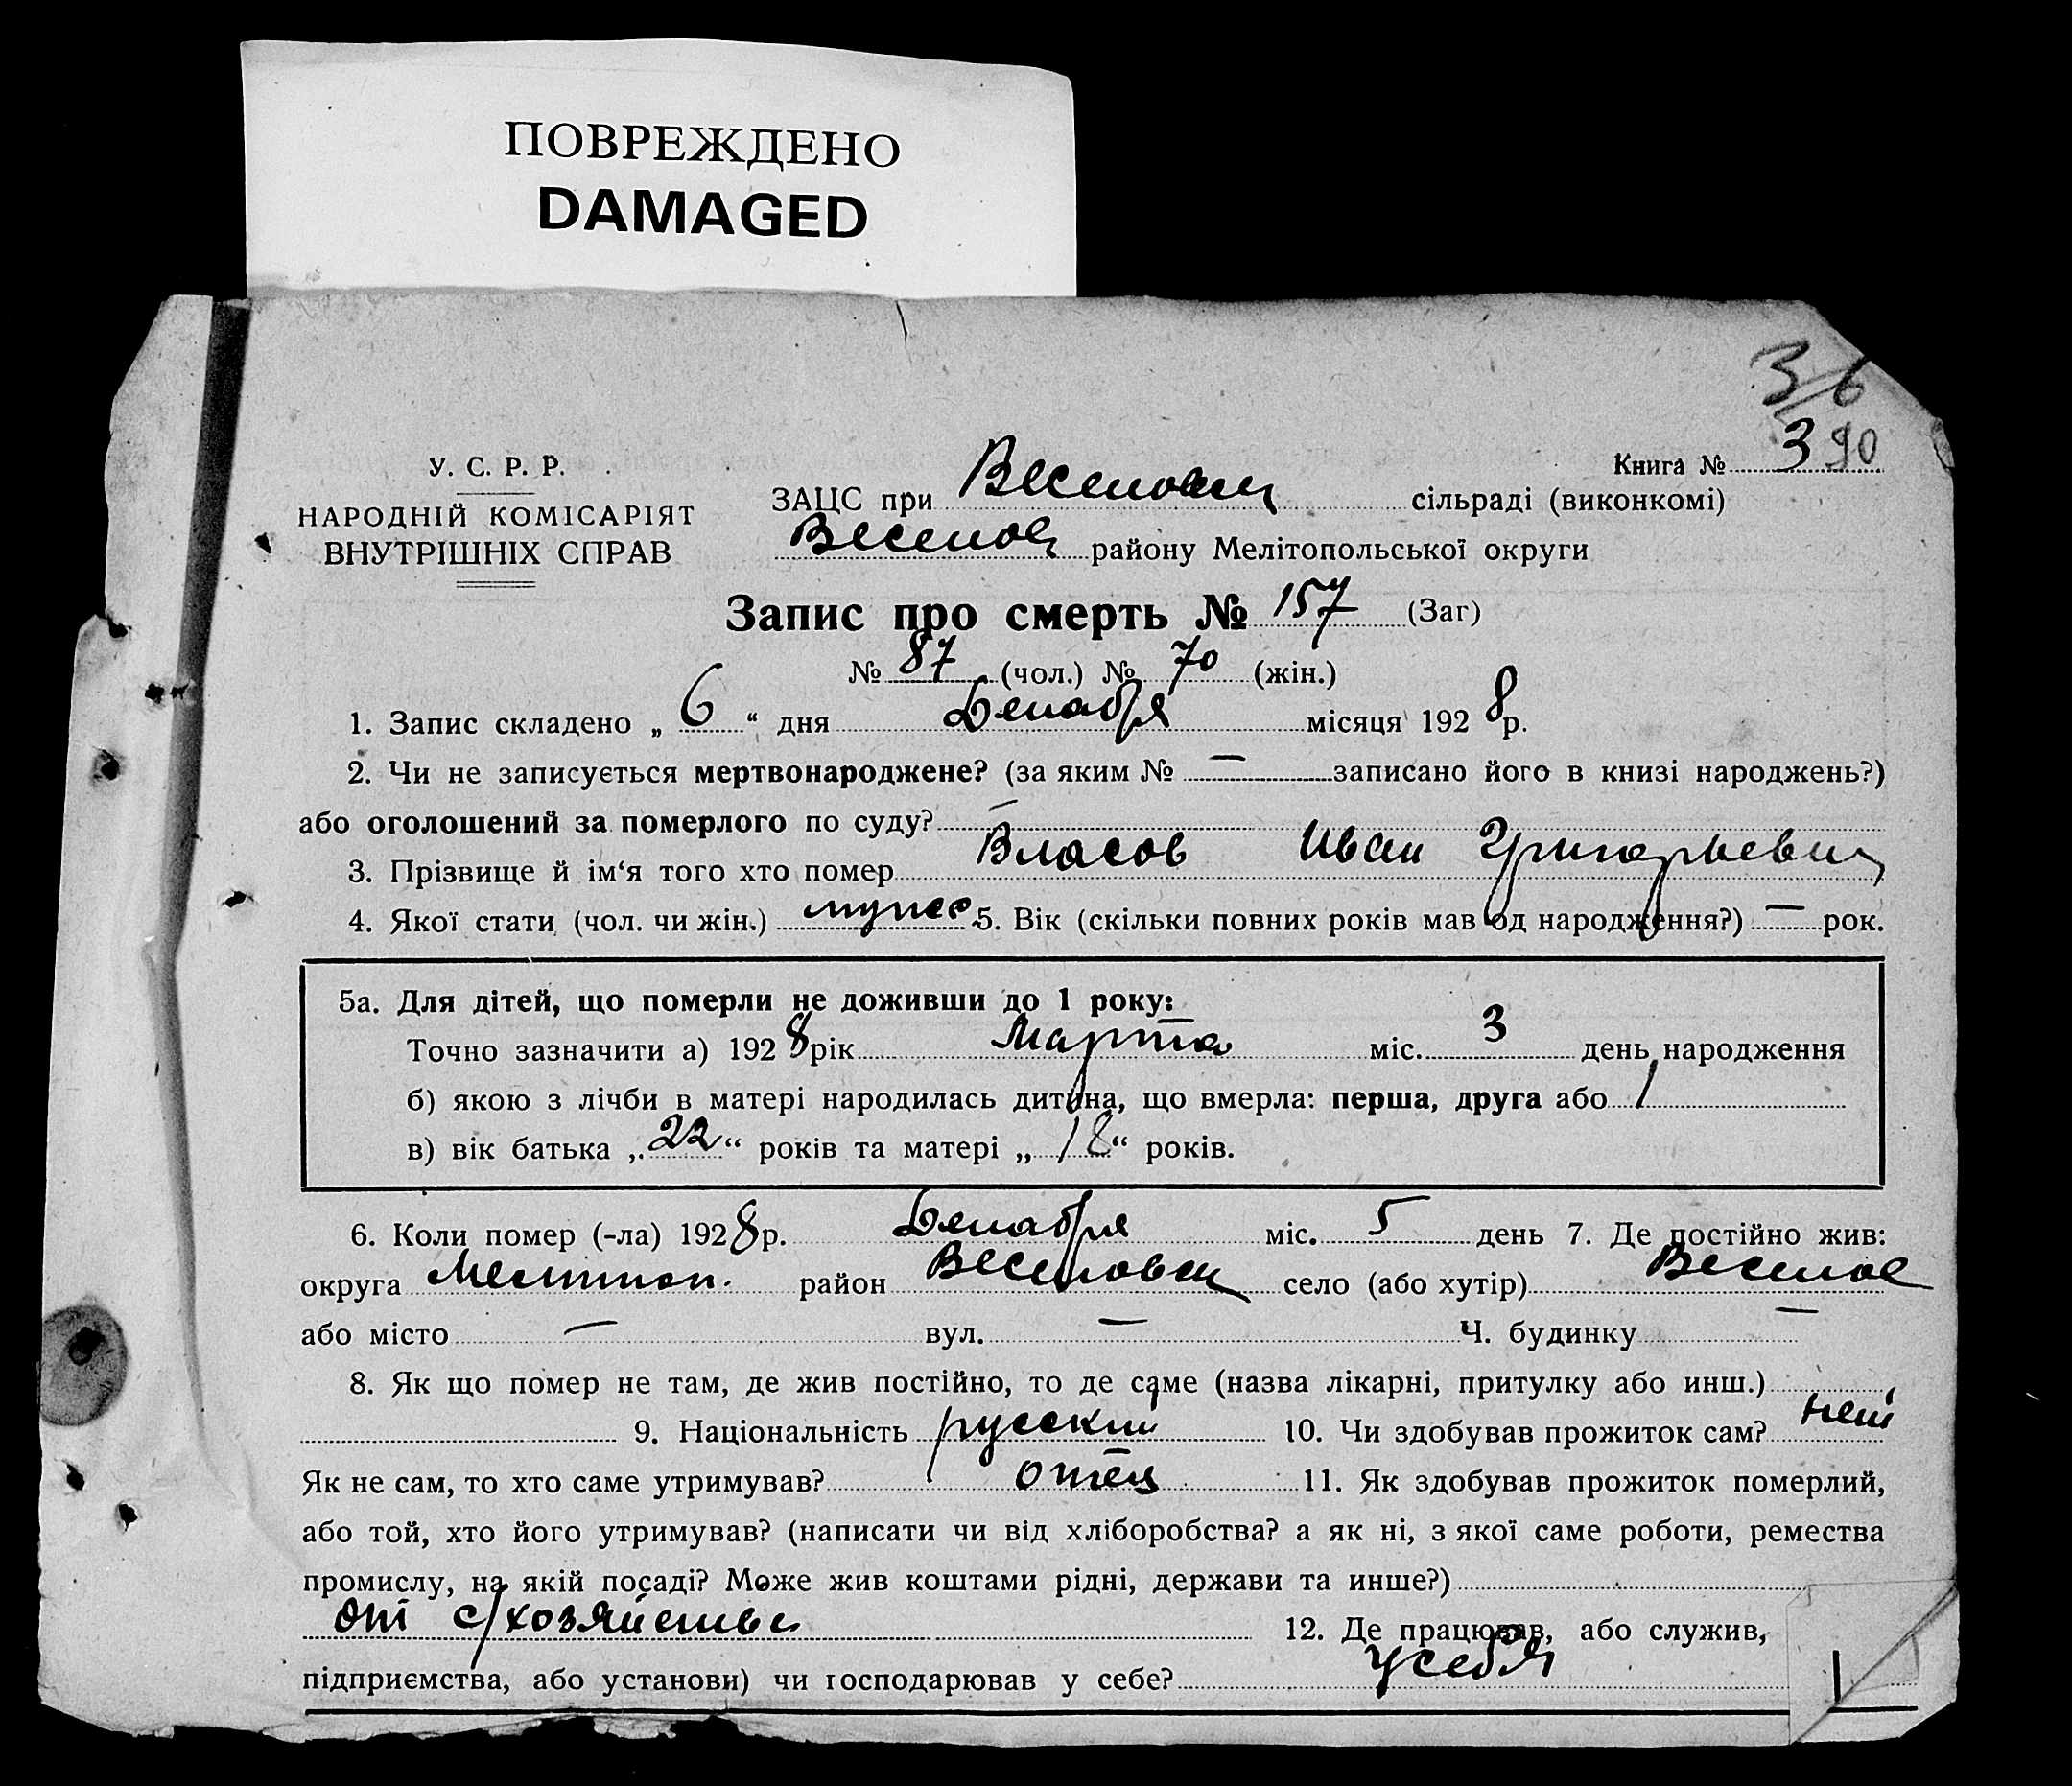 ПОВРЕЖДЕНО
DAMAGED
3/6
390
У. С. Р. Р.
НАРОДНІЙ КОМІСАРІЯТ
ВНУТРІШНІХ СПРАВ
Книга № 3
ЗАЦС при Веселовск сільраді (виконкомі)
Веселов району Мелітопольської округи
Запис про смерть № 157 (Заг)
№ 87 (чол.) № 70 (жін.)
1. Запис складено „ 6 “ дня Декабря місяця 1928 р.
2. Чи не записується мертвонароджене? (за яким № — записано його в книзі народжень?)
або оголошений за померлого по суду? —
3. Прізвище й ім‘я того хто помер Власов Иван Григорьевич
4. Якої стати (чол. чи жін.) 5. Вік (скільки повних років мав од народження?) — рок.
5а. Для дітей, що померли не доживши до 1 року:
Точно зазначити а) 1928 рік Марта міс. 3 день народження
б) якою з лічби в матері народилась дитина, що вмерла: перша, друга або 1
в) вік батька „ 22 “ років та матері „ 18 “ років.
6. Коли помер (-ла) 1928 р. Декабря міс. 5 день 7. Де постійно жив:
округа Мелитоп. район Веселовск село (або хутір) Веселое
або місто — вул. — Ч. будинку —
8. Як що помер не там, де жив постійно, то де саме (назва лікарні, притулку або инш.)
9. Національність русский 10. Чи здобував прожиток сам? нет
Як не сам, то хто саме утримував? отец 11. Як здобував прожиток померлий,
або той, хто його утримував? (написати чи від хліборобства? а як ні, з якої саме роботи, ремества
промислу, на якій посаді? Може жив коштами рідні, держави та инше?)
от с/хозяйства 12. Де працював, або служив,
підприємства, або установи) чи господарював у себе? у себя